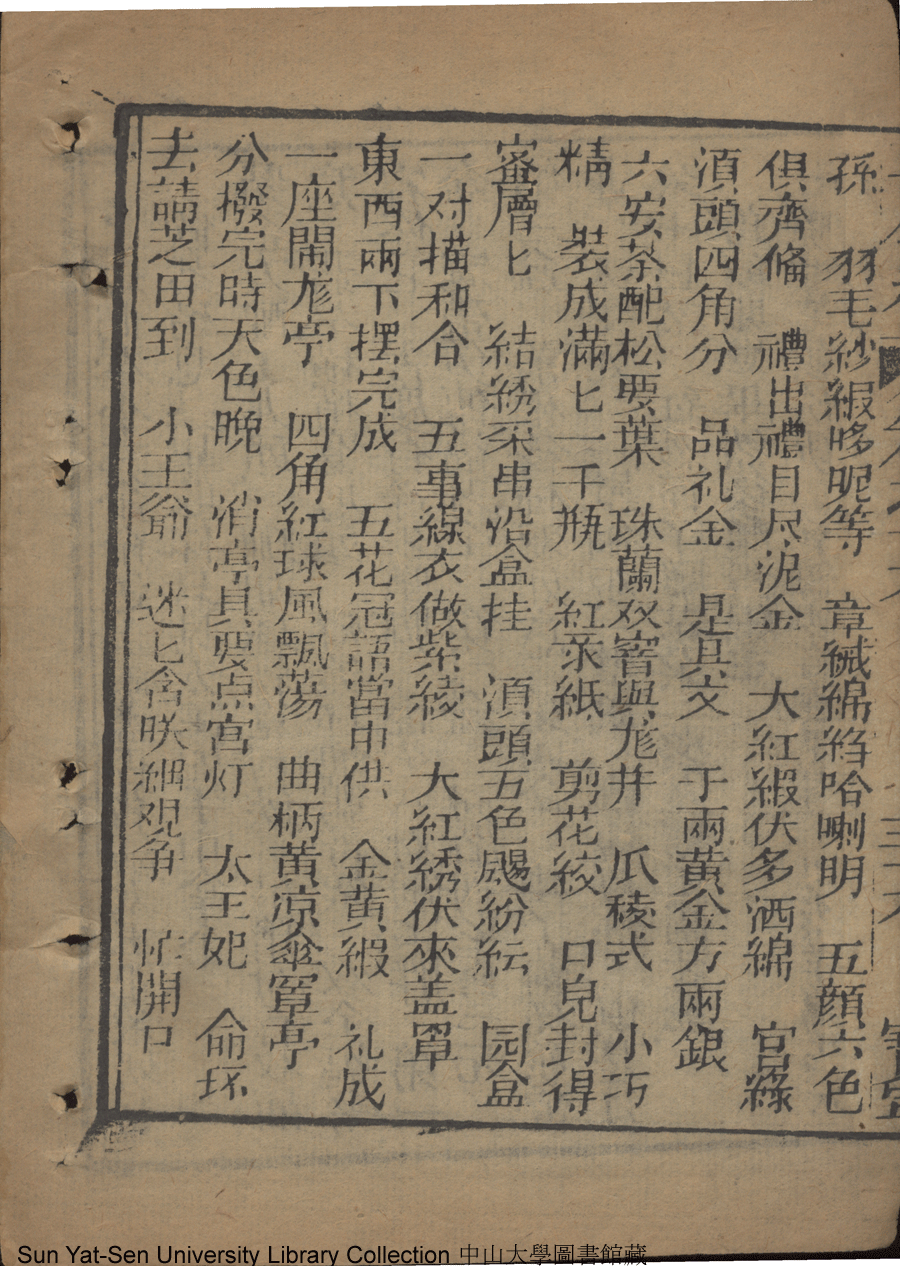 孫　羽毛紗緞哆呢等　章緘綿縐哈喇明　五顔六色
俱齊俻　禮出禮目尽泥金　大紅緞伏多洒綿　官綠
湏頭四角分　品礼金　是具文　于兩黃金方兩銀
六安茶配松要葉　珠蘭双窨與尨井　瓜稜式　小巧
精　裝成滿匕一千瓶　紅汞紙　剪花絞　口皃封得
宻層匕　結綉采串沿盒挂　湏頭五色颺紛紜　园盒
一对描和合　五事線衣做紫綾　大紅綉伏來盖罩
東西兩下摆完成　五花冠誥當中供　金黃緞　礼成
一座閙尨亭　四角紅球風飄蕩　曲柄黄凉傘罩亭
分撥完時天色晚　消亭具要点宮灯　太王妃　命环
去請芝田到　小王爺　迷匕含𥬇細观争　忙開口
Sun Yat-Sen University Library Collection 中山大學圖書館藏